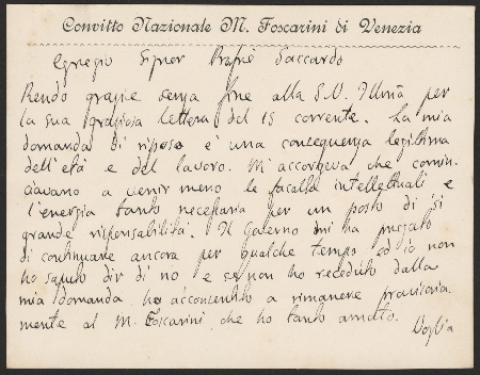 Convitto Nazionale M. Foscarini di Venezia
Egregio Signor Profre Saccardo
Rendo grazie senza fine alla S.V. Illma per
la sua graziosa lettera del 15 corrente. La mia
domanda di riposo è una conseguenza legittima
dell'età e del lavoro. M'accorgeva che comin-
ciavano a venir meno le facoltà intellettuali e
l'energia tanto necessaria per un posto di sì
grande risponsabilità. Il Governo mi ha pregato
di continuare ancora per qualche tempo ed io non
ho saputo dir di no e se non ho receduto dalla
mia domanda ho acconsentito a rimanere provvisoria-
mente al M. Foscarini che ho tanto amato.
Voglia